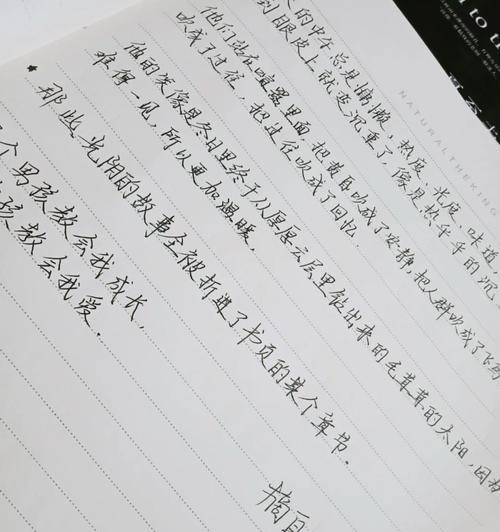 的中午总是慵懒，热度、光度、味道
到眼皮上就变沉重了，像是热乎乎的沉
他们站在喧嚣里面，把黄昏吹成了安静，把人群吹成了飞鸟
吹成了过往，把过往吹成了回忆.
他的笑像是冬日里终于从厚厚云层里钻出来的毛茸茸的太阳，因为
难得一见，所以更加温暖.
★ 那些光阴的故事全被折进了书页的某个章节.
个男孩教会我成长，
孩教会我爱.
摘自
NATURALTHEKING
to th